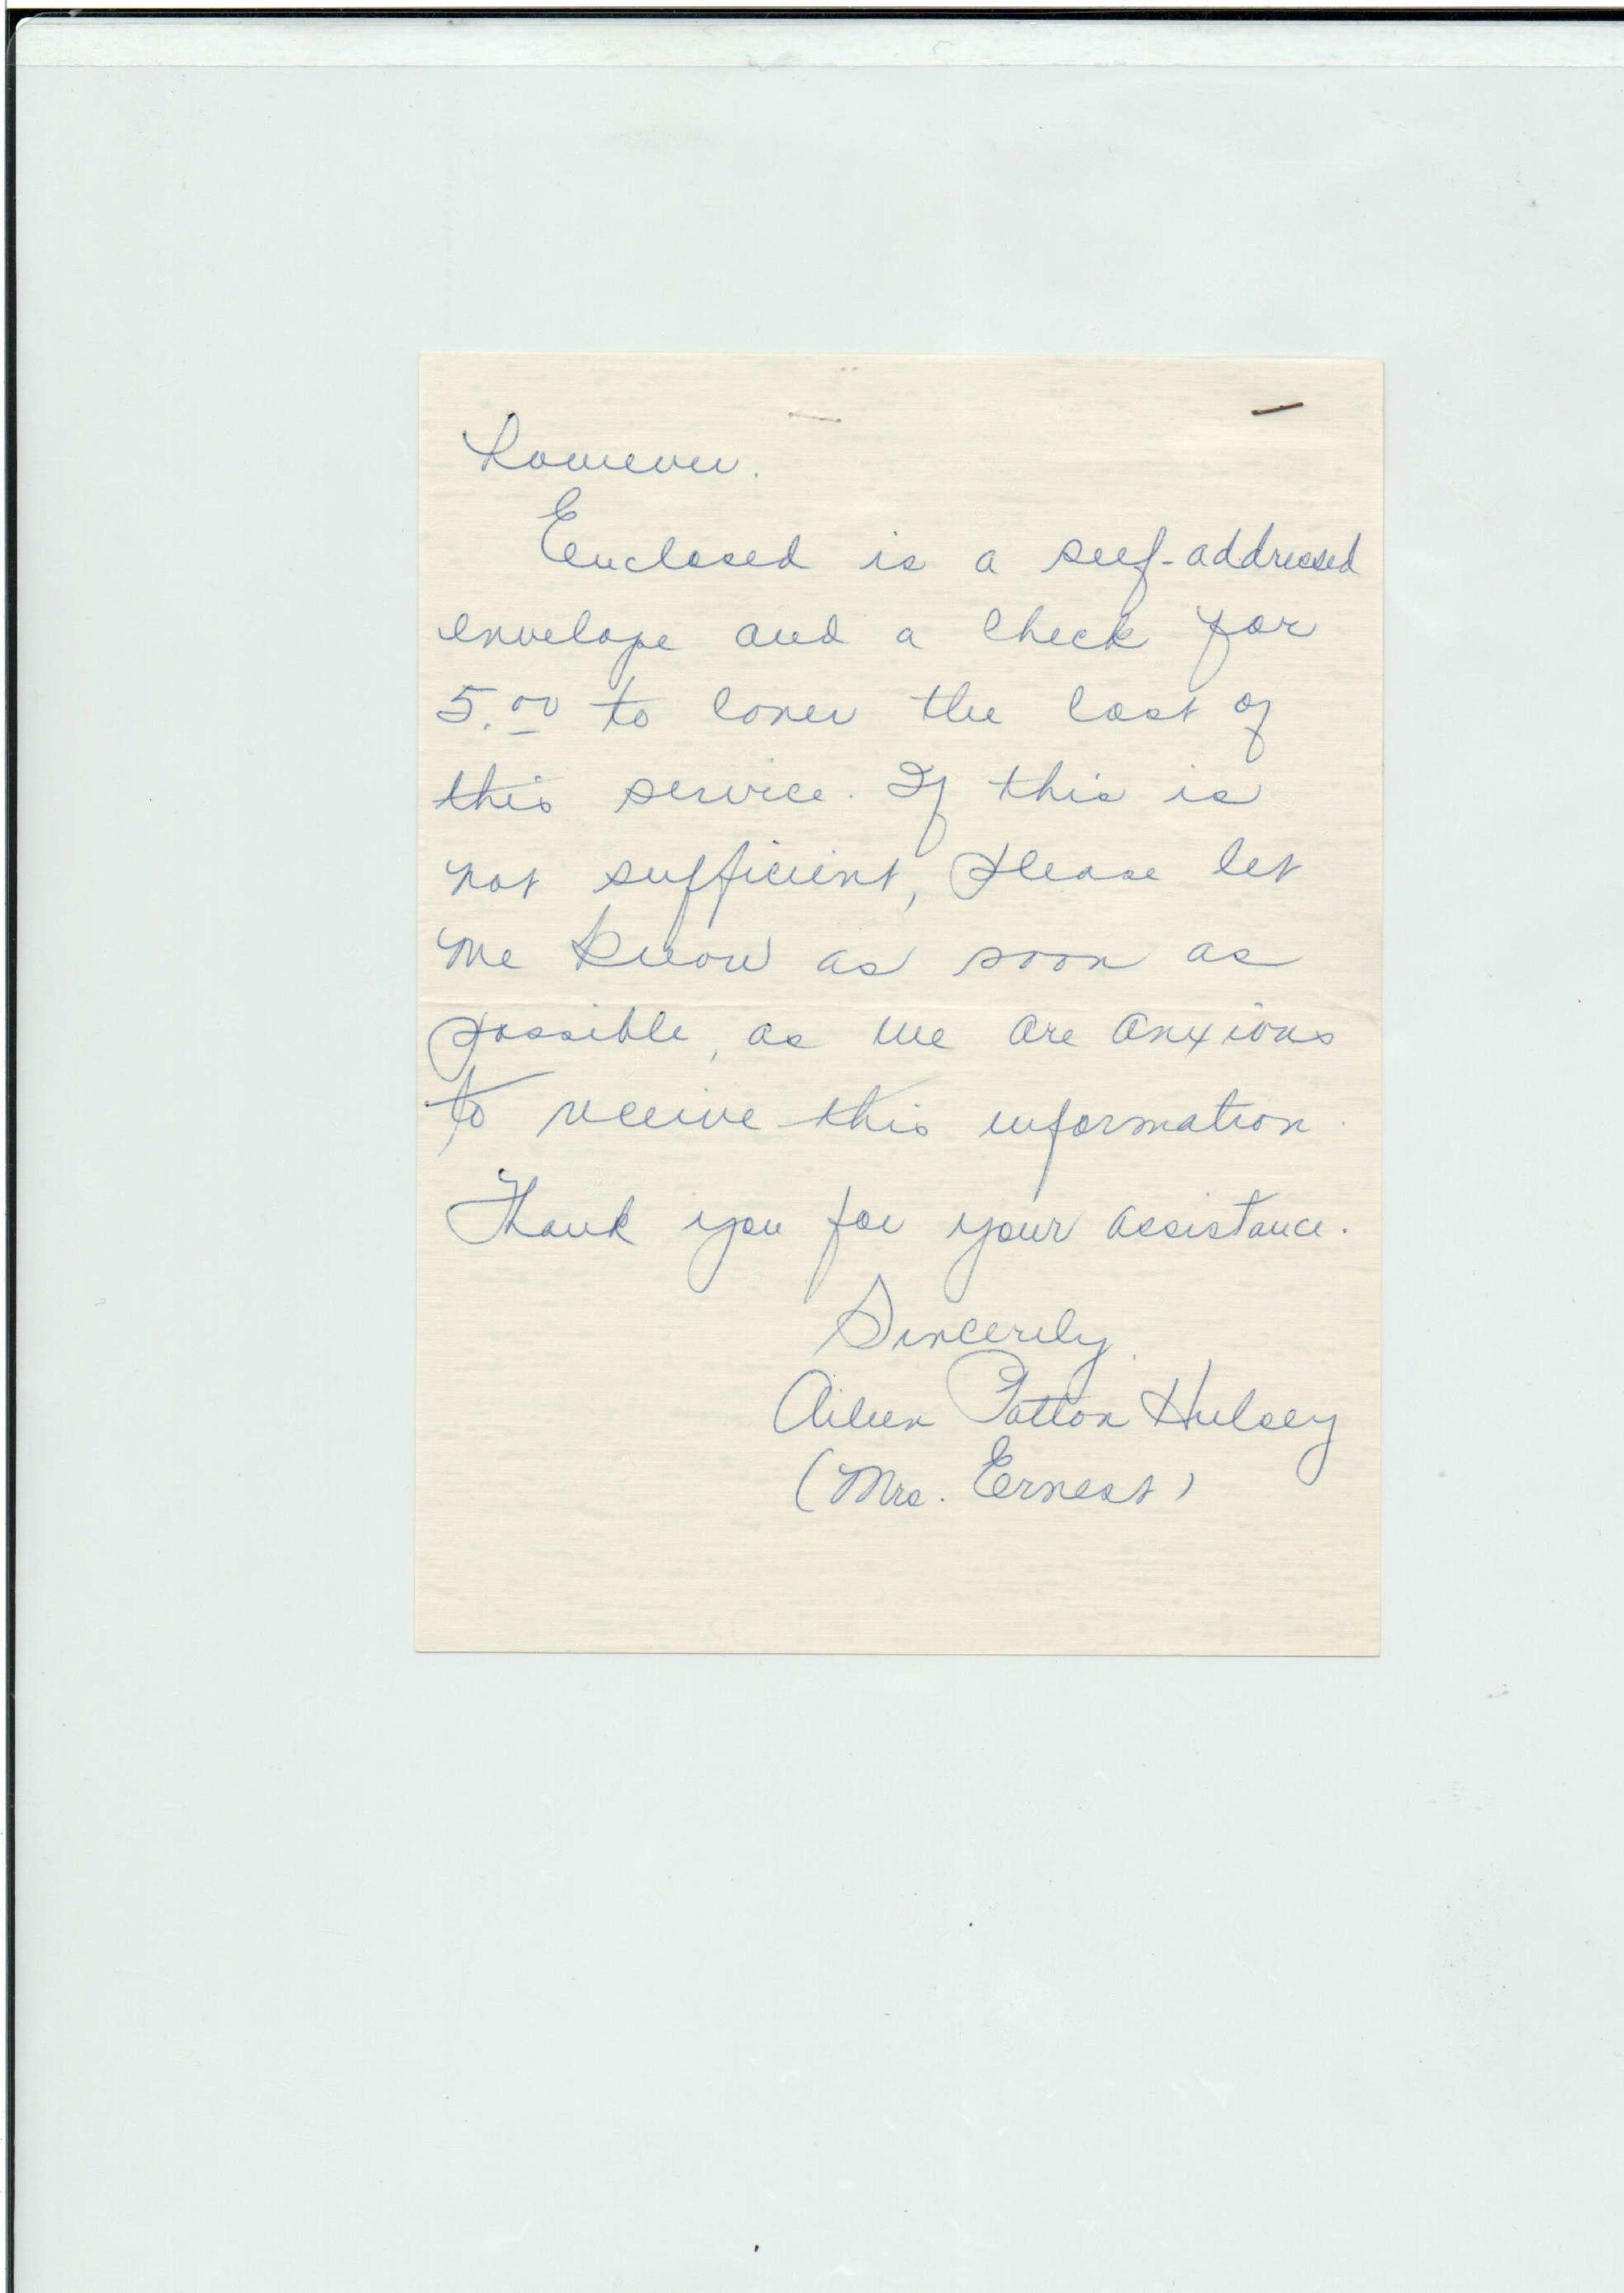 however.
Enclosed is a self-addressed
envelope and a check for
5.00 to cover the cost of
this service. If this is
not sufficient, please let
me know as soon as
possible, as we are anxious
to receive this information.
Thank you for your assistance.
Sincerely,
Aileen Patton Hulsey
(Mrs. Ernest)